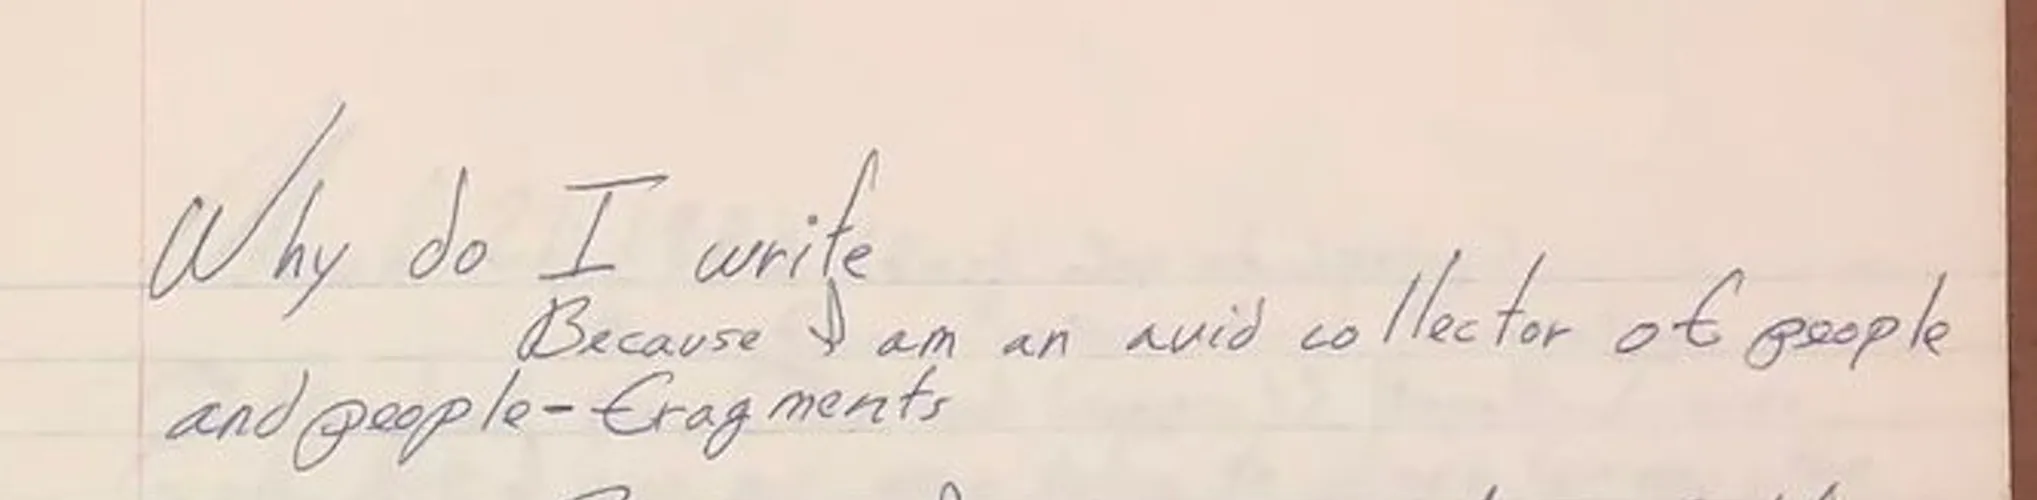 Why do I write
Because I am an avid collector of people
and people-fragments